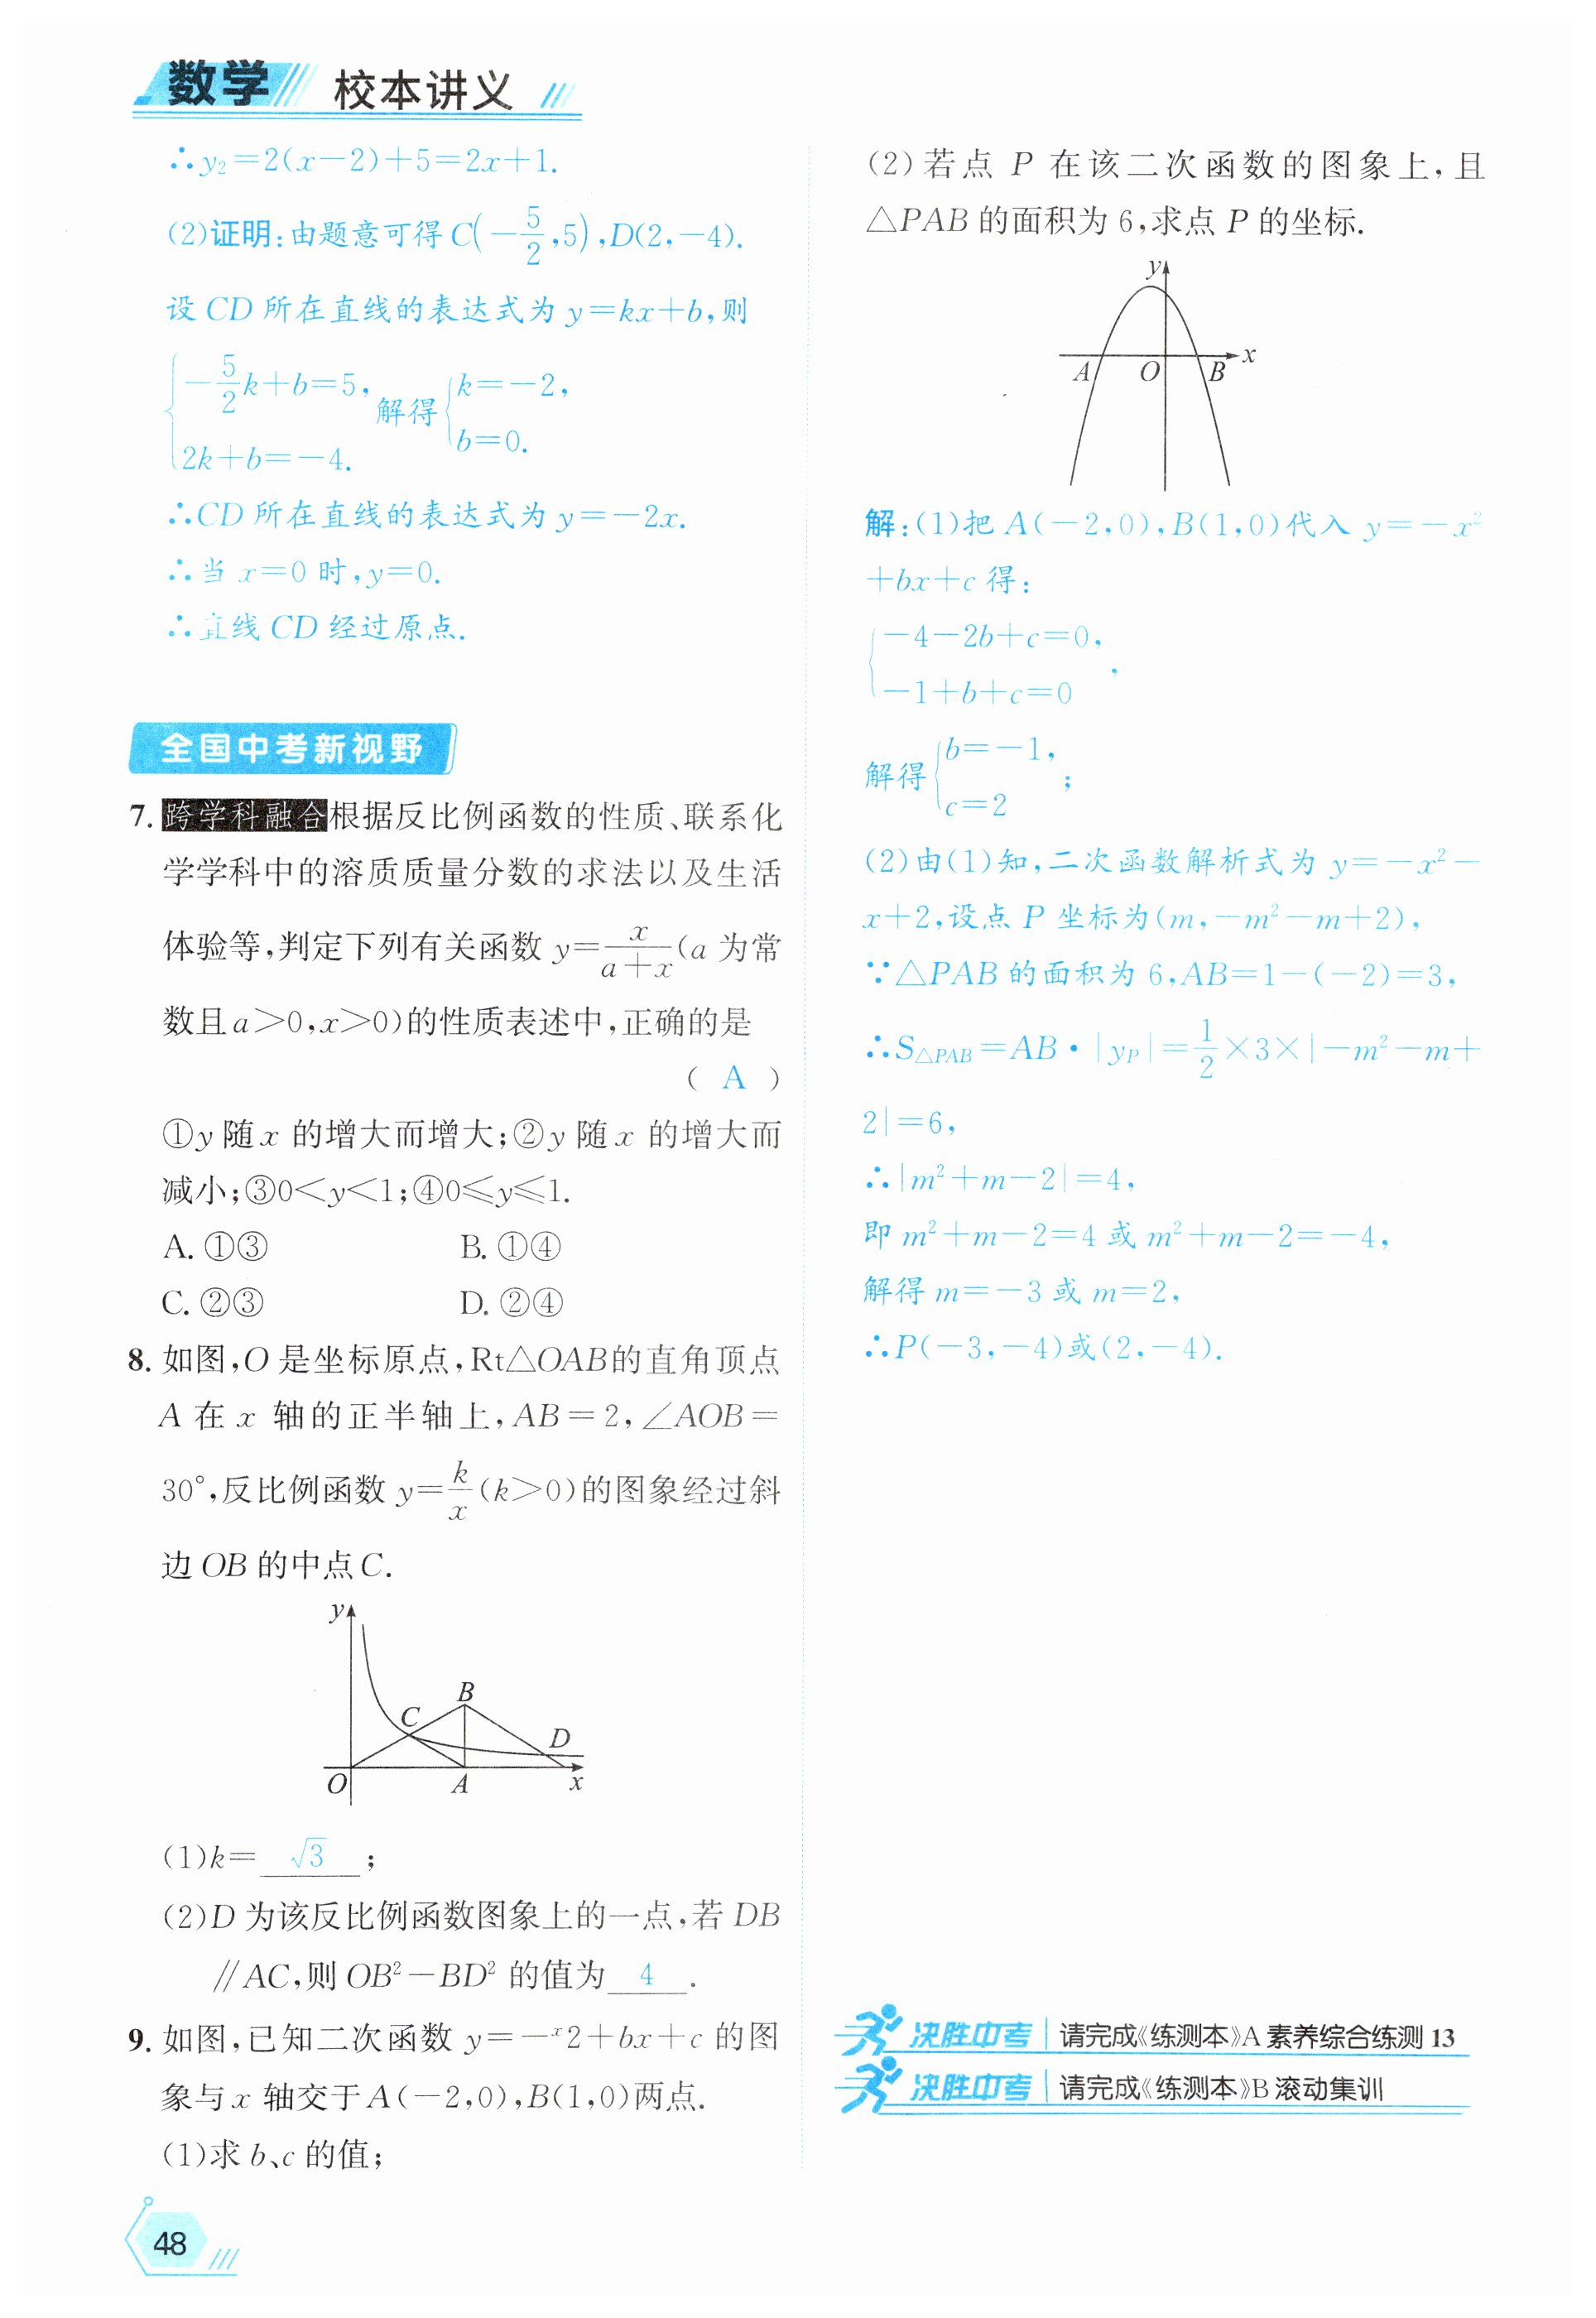 数学 校本讲义
∴y₂=2(x-2)+5=2x+1.
(2)证明:由题意可得C(-5/2,5),D(2,-4).
设CD所在直线的表达式为y=kx+b,则
{-5/2k+b=5, 2k+b=-4. 解得{k=-2, b=0.
∴CD所在直线的表达式为y=-2x.
∴当x=0时,y=0.
∴直线CD经过原点.
全国中考新视野
7. 跨学科融合 根据反比例函数的性质、联系化
学学科中的溶质质量分数的求法以及生活
体验等,判定下列有关函数y=x/(a+x)(a为常
数且a>0,x>0)的性质表述中,正确的是
( A )
①y随x的增大而增大;②y随x的增大而
减小;③0<y<1;④0≤y≤1.
A. ①③ B. ①④
C. ②③ D. ②④
8. 如图,O是坐标原点,Rt△OAB的直角顶点
A在x轴的正半轴上,AB=2,∠AOB=
30°,反比例函数y=k/x(k>0)的图象经过斜
边OB的中点C.
y
B
C
D
O A x
(1)k=√3;
(2)D为该反比例函数图象上的一点,若DB
∥AC,则OB²-BD²的值为4.
9. 如图,已知二次函数y=-ˣ2+bx+c的图
象与x轴交于A(-2,0),B(1,0)两点.
(1)求b、c的值;
48
(2)若点P在该二次函数的图象上,且
△PAB的面积为6,求点P的坐标.
y
x
A O B
解:(1)把A(-2,0),B(1,0)代入y=-x²
+bx+c得:
{-4-2b+c=0, -1+b+c=0,
解得{b=-1, c=2;
(2)由(1)知,二次函数解析式为y=-x²-
x+2,设点P坐标为(m,-m²-m+2),
∵△PAB的面积为6,AB=1-(-2)=3,
∴S△PAB=AB·|yP|=1/2×3×|-m²-m+
2|=6,
∴|m²+m-2|=4,
即m²+m-2=4或m²+m-2=-4,
解得m=-3或m=2,
∴P(-3,-4)或(2,-4).
决胜中考 请完成《练测本》A素养综合练测13
决胜中考 请完成《练测本》B滚动集训